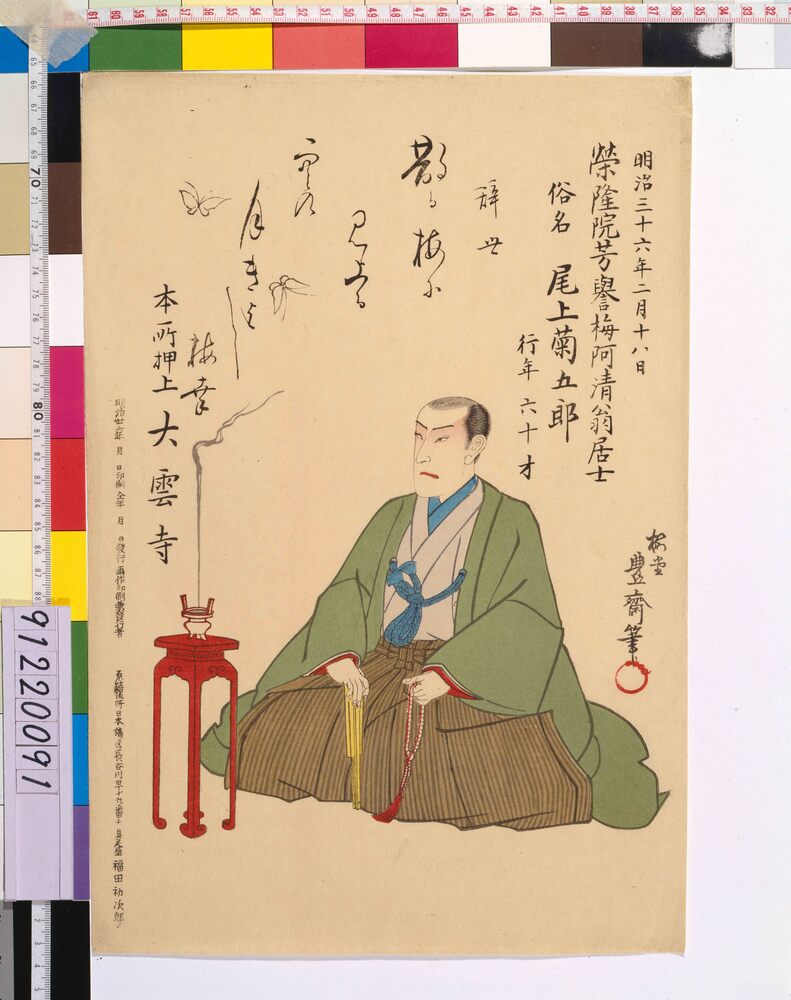 明治三十六年二月十八日
榮隆院芳譽梅阿清翁居士
俗名 尾上菊五郎
行年 六十才
辞世
散る梅に
見上る
空の
月きよし
梅幸
本所押上 大雲寺
梅堂
豊斎筆
明治卅六年 月 日印刷 仝年 月 日發行 画作印刷兼發行者
日本橋区長谷川町十九番チ 具足屋 福田初次郎
91220091